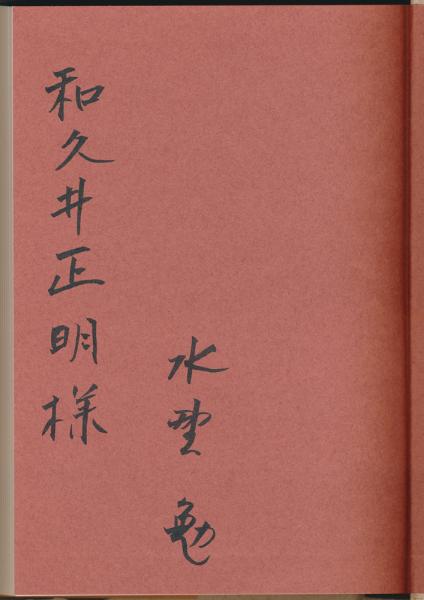 水野 勉
和久井正明様